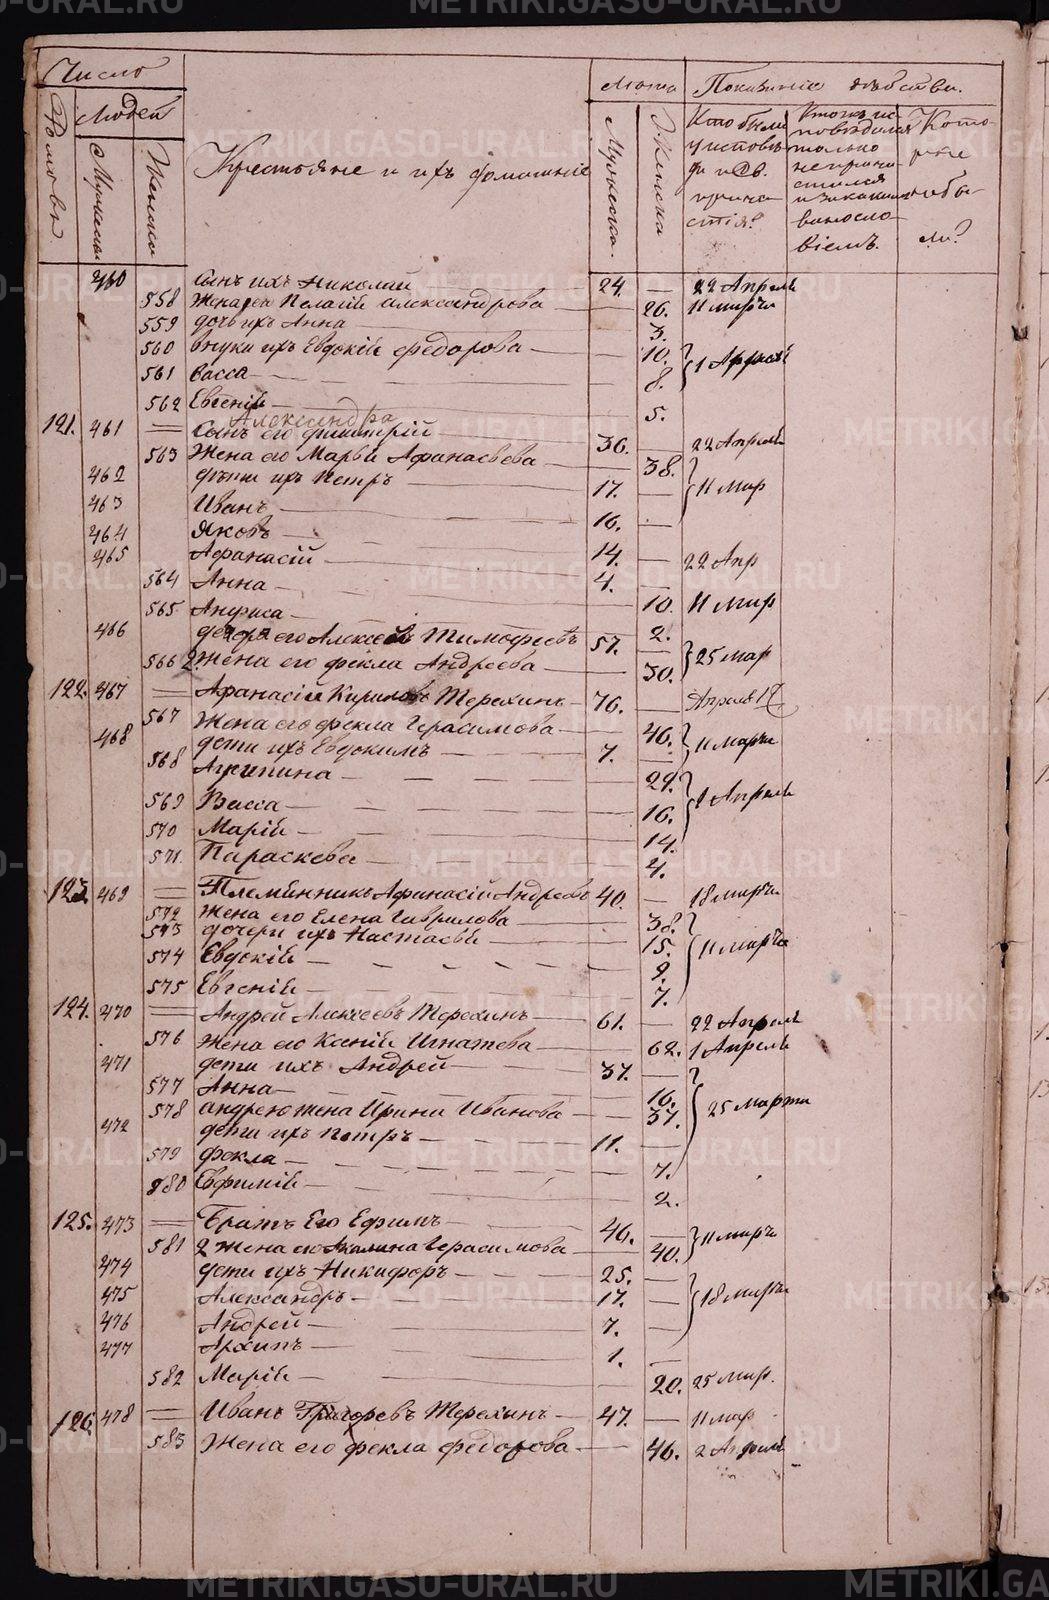 Число
Лѣта
Показаніе дѣйства.
Домовъ
Людей
Мужеска
Женска
Крестьяне и ихъ домашніе
Мужеска.
Женска
Кто были
у исповѣ-
ди и Св.
прича-
стія?
Кто жъ ис-
повѣдался
только
не прича-
стился
и за каким
винословіемъ.
Кото-
рые
не бы-
ли?
460 Сынъ ихъ Николай 24. — 22 Апрель
558 Жена его Пелагій Александрова — 26. 11 марта
559 дочь ихъ Анна — 3.
560 внуки ихъ Евдокій Федорова — 10. 1 Апрель
561 Васса — 8.
562 Евгеній — 5.
Александра
121. 461 Сынъ его Димитрій 36. — 22 Апрель
563 Жена его Марья Афанасьева — 38. 11 Мар
462 дѣти ихъ Петръ 17. —
463 Иванъ 16. —
464 Яковъ 14. — 22 Апр
465 Афанасій 4. —
564 Анна — 10. 11 мар
565 Анфиса — 2.
466 его Алексей Тимофеевъ 57. — 25 мар
566 2 Жена его Фекла Андреева — 30.
122. 467 Афанасій Кириловъ Терехинъ 76. — Апреля 17
567 Жена его Фекла Герасимова — 46. 11 Марта
468 дети ихъ Евдокимъ 7. —
568 Агрипина — 29. 1 Апрель
569 Васса — 16.
570 Марій — 14.
571. Параскева — 4.
123. 469 Племѣнникъ Афанасій Андреевъ 40. — 18 марта
572 Жена его Елена Гаврилова — 38. 11 марта
573 дочери ихъ Настасья — 15.
574 Евдокій — 9.
575 Евгеній — 7.
124. 470 Андрей Алексеевъ Терехинъ 61. — 22 Апрель
576 Жена его Ксеній Игнатева — 62. 1 Апрель
471 дети ихъ Андрей 37. — 25 Марта
577 Анна — 16.
578 андрею жена Ирина Иванова — 37.
472 дети ихъ Петръ 11. —
579 Фекла — 7.
580 Евфимій — 2.
125. 473 Братъ Его Ефимъ 46. — 11 маръ
581 2 Жена его Акилина Герасимова — 40.
474 дети ихъ Никифоръ 25. — 18 марта
475 Александръ 17. —
476 Андрей 7. —
477 Архипъ 1. —
582 Марій — 20. 25 Мар.
126. 478 Иванъ Григоревъ Терехинъ 47. — 11 мар
583 Жена его Фекла Федорова — 46. 2 Апрель
METRIKI.GASO-URAL.RU